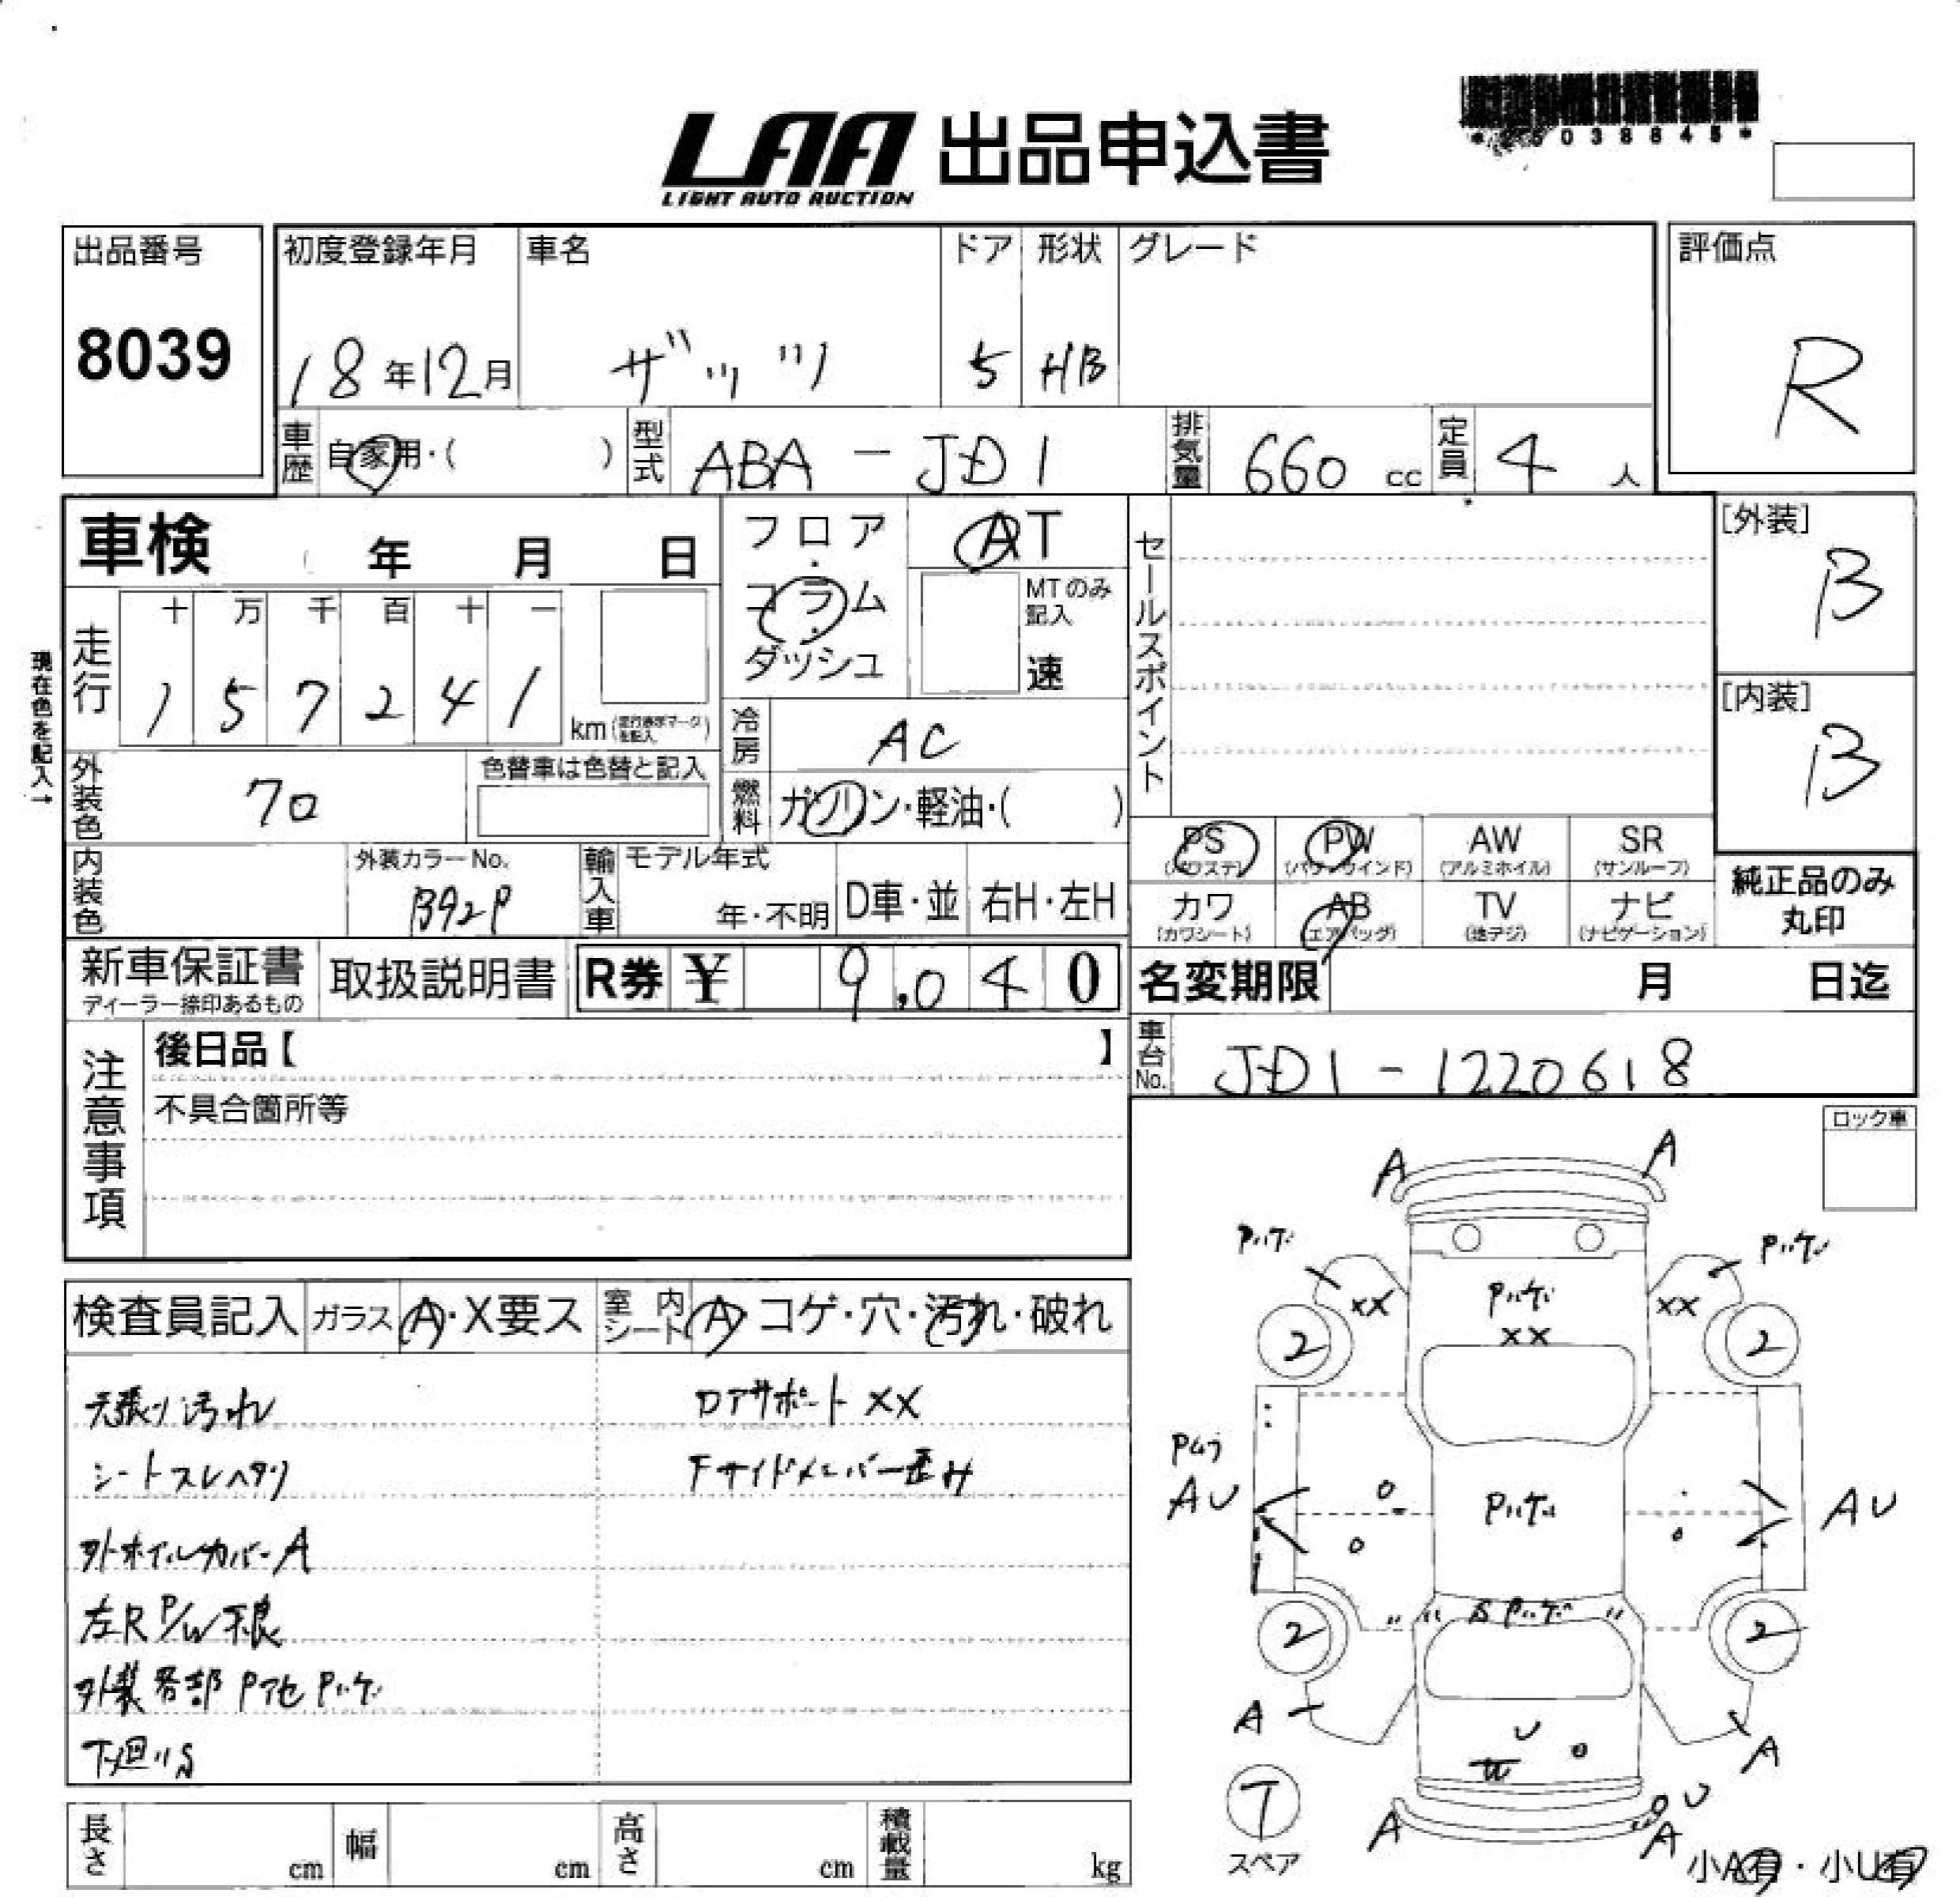 LAA 出品申込書
LIGHT AUTO AUCTION
出品番号
8039
初度登録年月
18年12月
車名
ザッツ
ドア
5
形状
HB
グレード
評価点
R
車歴
自家用・(　　)
型式
ABA - JD1
排気量
660 cc
定員
4 人
車検　年　月　日
現在色を記入→
走行
十 万 千 百 十 一
1 5 7 2 4 1
km
フロア
・
コラム
・
ダッシュ
AT
MTのみ
記入
速
冷房
AC
燃料
ガソリン・軽油・(　　)
セールスポイント
[外装]
B
[内装]
B
外装色
色替車は色替と記入
内装色
外装カラーNo.
B92P
輸入車
モデル年式
年・不明
D車・並
右H・左H
PS
(パワステ)
PW
(パワーウインド)
AW
(アルミホイル)
SR
(サンルーフ)
カワ
(カワシート)
AB
(エアバッグ)
TV
(地デジ)
ナビ
(ナビゲーション)
純正品のみ
丸印
新車保証書
ディーラー捺印あるもの
取扱説明書
R券 ¥ 9,040
名変期限　月　日迄
車台No.
JD1 - 1220618
注意事項
後日品【　　】
不具合箇所等
ロック車
検査員記入
ガラス
A・X要ス
室内
シート
A・コゲ・穴・汚れ・破れ
天張り汚れ
シートスレヘタリ
外ホイルカバーA
左R P/W不良
外装各部 Pアセ Pハゲ
下廻りS
コアサポート XX
Fサイドメンバー歪み
A
A
Pハゲ
Pハゲ
XX
Pハゲ
XX
XX
2
2
Pムラ
AU
Pハゲ
AU
S Pハゲ
2
2
A
U
A
T
スペア
A
U
A
小A有・小U有
長さ
cm
幅
cm
高さ
cm
積載量
kg